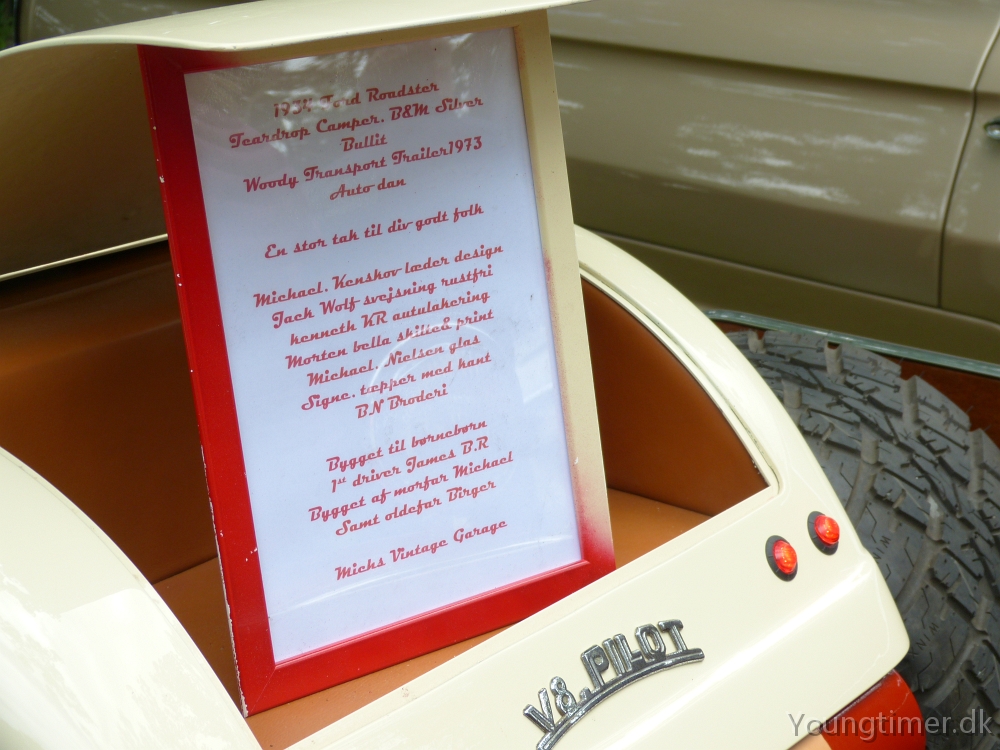 1934 Ford Roadster
Teardrop Camper. B&M Silver
Bullit
Woody Transport Trailer1973
Auto-dan
En stor tak til div godt folk
Michael. Kenskov læder design
Jack Wolf svejsning rustfri
kenneth KR autulakering
Morten bella skilte& print
Michael. Nielsen glas
Signe. tæpper med kant
B.N Broderi
Bygget til børnebørn
1st driver James B.R
Bygget af morfar Michael
Samt oldefar Birger
Michs Vintage Garage
V8.PILOT
Youngtimer.dk